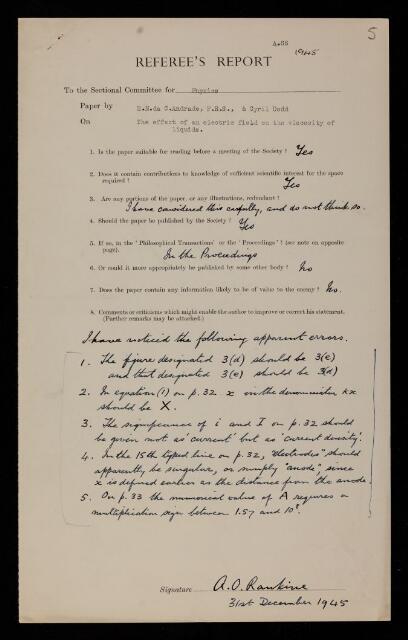 5
A.66
1945
REFEREE'S REPORT
To the Sectional Committee for Physics
Paper by E.N.da C.Andrade, F.R.S., & Cyril Dodd
On The effect of an electric field on the viscosity of
liquids.
1. Is the paper suitable for reading before a meeting of the Society? Yes
2. Does it contain contributions to knowledge of sufficient scientific interest for the space
required? Yes
3. Are any portions of the paper, or any illustrations, redundant?
I have considered this carefully, and do not think so.
4. Should the paper be published by the Society? Yes
5. If so, in the 'Philosophical Transactions' or the 'Proceedings'? (see note on opposite
page). In the Proceedings
6. Or could it more appropriately be published by some other body? No
7. Does the paper contain any information likely to be of value to the enemy? No.
8. Comments or criticisms which might enable the author to improve or correct his statement.
(Further remarks may be attached.)
I have noticed the following apparent errors.
1. The figure designated 3(d) should be 3(e)
and that designated 3(e) should be 3(d)
2. In equation (1) on p.32 x in the denominator kx
should be X.
3. The significance of i and I on p.32 should
be given not as 'current' but as 'current density'.
4. In the 15th typed line on p.32, "electrodes" should
apparently be singular, or simply "anode", since
x is defined earlier as the distance from the anode.
5. On p.33 the numerical value of A requires a
multiplication sign between 1.57 and 10⁸.
Signature A.O. Rankine
31st December 1945